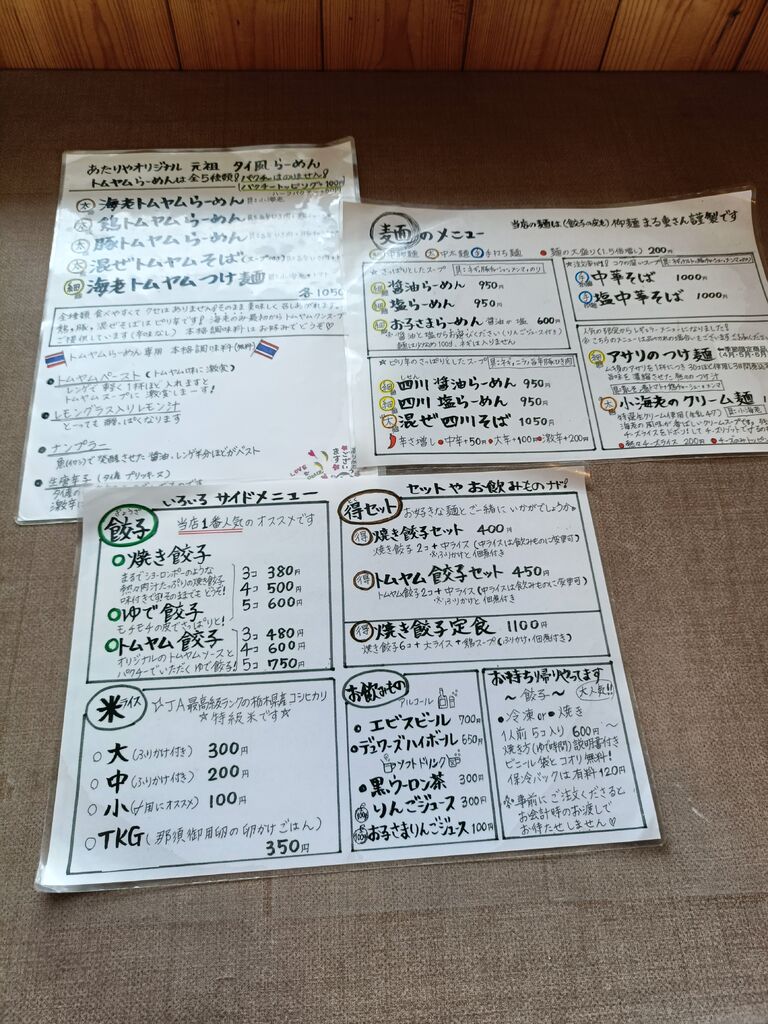 あたりやオリジナル 元祖 タイ風らーめん
トムヤムらーめんは全5種類!
パクチーはのりません!
パクチートッピング 100円
太 海老トムヤムらーめん
太 鶏トムヤムらーめん
太 豚トムヤムらーめん
太 混ぜトムヤムそば
細 海老トムヤムつけ麺
各1050
全種類 食べやすくてクセはありません!そのまま美味しく召しあがれます。
鶏、豚、混ぜそばはピリ辛です!
本格調味料はお好みでどうぞ♡
トムヤムらーめん専用 本格調味料(無料)
トムヤムペースト(トムヤム味に激変)
レンゲで軽く1杯ほど入れますと
トムヤムスープに激変しまーす!
レモングラス入りレモン汁
とっても酸っぱくなります
ナンプラー
魚(イワシ)で発酵させた醤油。レンゲ半分ほどがベスト
生唐辛子(タイ産 プリッキーヌ)
麺のメニュー
当店の麺は(餃子の皮も)柳麺 まる重さん謹製です
細 中細麺 太 中太麺 手 手打ち麺
麺の大盛り(1.5倍増し)200円
☆さっぱりとしたスープ
細 醤油らーめん 950円
細 塩らーめん 950円
細 お子さまらーめん 醤油or塩 600円
醤油と塩からお選びください(りんごジュース付き)
☆ピリ辛のさっぱりとしたスープ
細 四川醤油らーめん 950円
細 四川塩らーめん 950円
太 混ぜ四川そば 1050円
辛さ増し ●中辛+50円 ●大辛+100円 ●激辛+200円
手 中華そば 1000円
手 塩中華そば 1000円
人気の限定からレギュラーメニューになりました!
アサリのつけ麺
小海老のクリーム麺
熱々チーズライス 200円
いろいろ サイドメニュー
ぎょうざ
餃子
当店1番人気のオススメです
焼き餃子
まるでショーロンポーのような
熱々肉汁たっぷりの焼き餃子
味付きですのでそのままでもどうぞ!
ゆで餃子
モチモチの皮でさっぱりと!
3コ 380円
4コ 500円
5コ 600円
トムヤム餃子
オリジナルのトムヤムソースと
パクチーでいただくゆで餃子!
3コ 480円
4コ 600円
5コ 750円
米 ライス
☆JA最高級ランクの栃木県産コシヒカリ
☆特級米です☆
大(ふりかけ付き) 300円
中(ふりかけ付き) 200円
小(〆用にオススメ) 100円
TKG(那須御用卵の卵かけごはん)
350円
セットやお飲みものナド!
得セット
お好きな麺とご一緒にいかがでしょうか
得 焼き餃子セット 400円
焼き餃子2コ+中ライス(中ライスは飲みものに変更可)
※ふりかけと佃煮付き
得 トムヤム餃子セット 450円
トムヤム餃子2コ+中ライス(中ライスは飲みものに変更可)
※ふりかけと佃煮付き
得 焼き餃子定食 1100円
焼き餃子6コ+大ライス+鶏スープ(ふりかけ、佃煮付き)
お飲みもの
アルコール
エビスビール 700円
デュワーズハイボール 650円
ソフトドリンク
黒ウーロン茶 300円
りんごジュース 300円
お子さまりんごジュース 100円
お持ち帰りやってます
〜餃子〜 大人気!!
●冷凍or●焼き
1人前 5コ入り 600円〜
焼き方(ゆで時間)説明書付き
ビニール袋とコオリ無料!
保冷バックは有料120円
※事前にご注文くださると
お会計時のお渡しで
お待たせしません♡